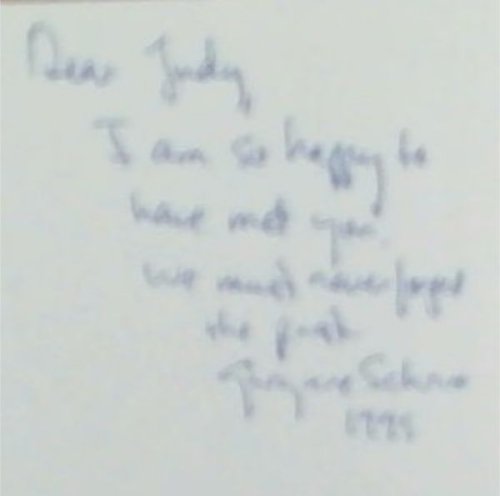 Dear Judy,
I am so happy to
have met you.
We must never forget
the past